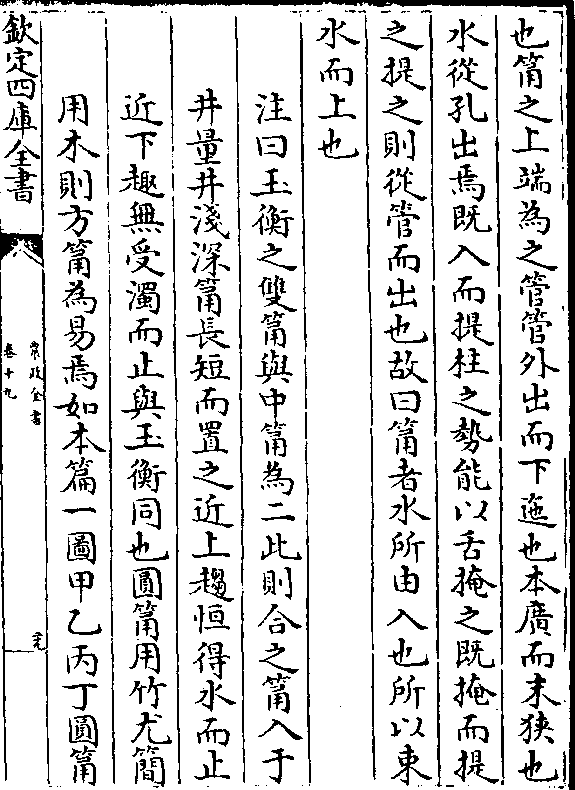 也筩之上端為之管管外出而下迤也本廣而末狹也
水從孔出焉既入而提柱之勢能以舌掩之既掩而提
之提之則從管而出也故曰筩者水所由入也所以束
水而上也
注曰玉衡之雙筩與中筩為二此則合之筩入于
井量井淺深筩長短而置之近上趨恒得水而止
近下趣無受濁而止與玉衡同也圓筩用竹尤簡
用木則方筩為易焉如本篇一圖甲乙丙丁圓筩
欽定四庫全書
農政全書
卷十九